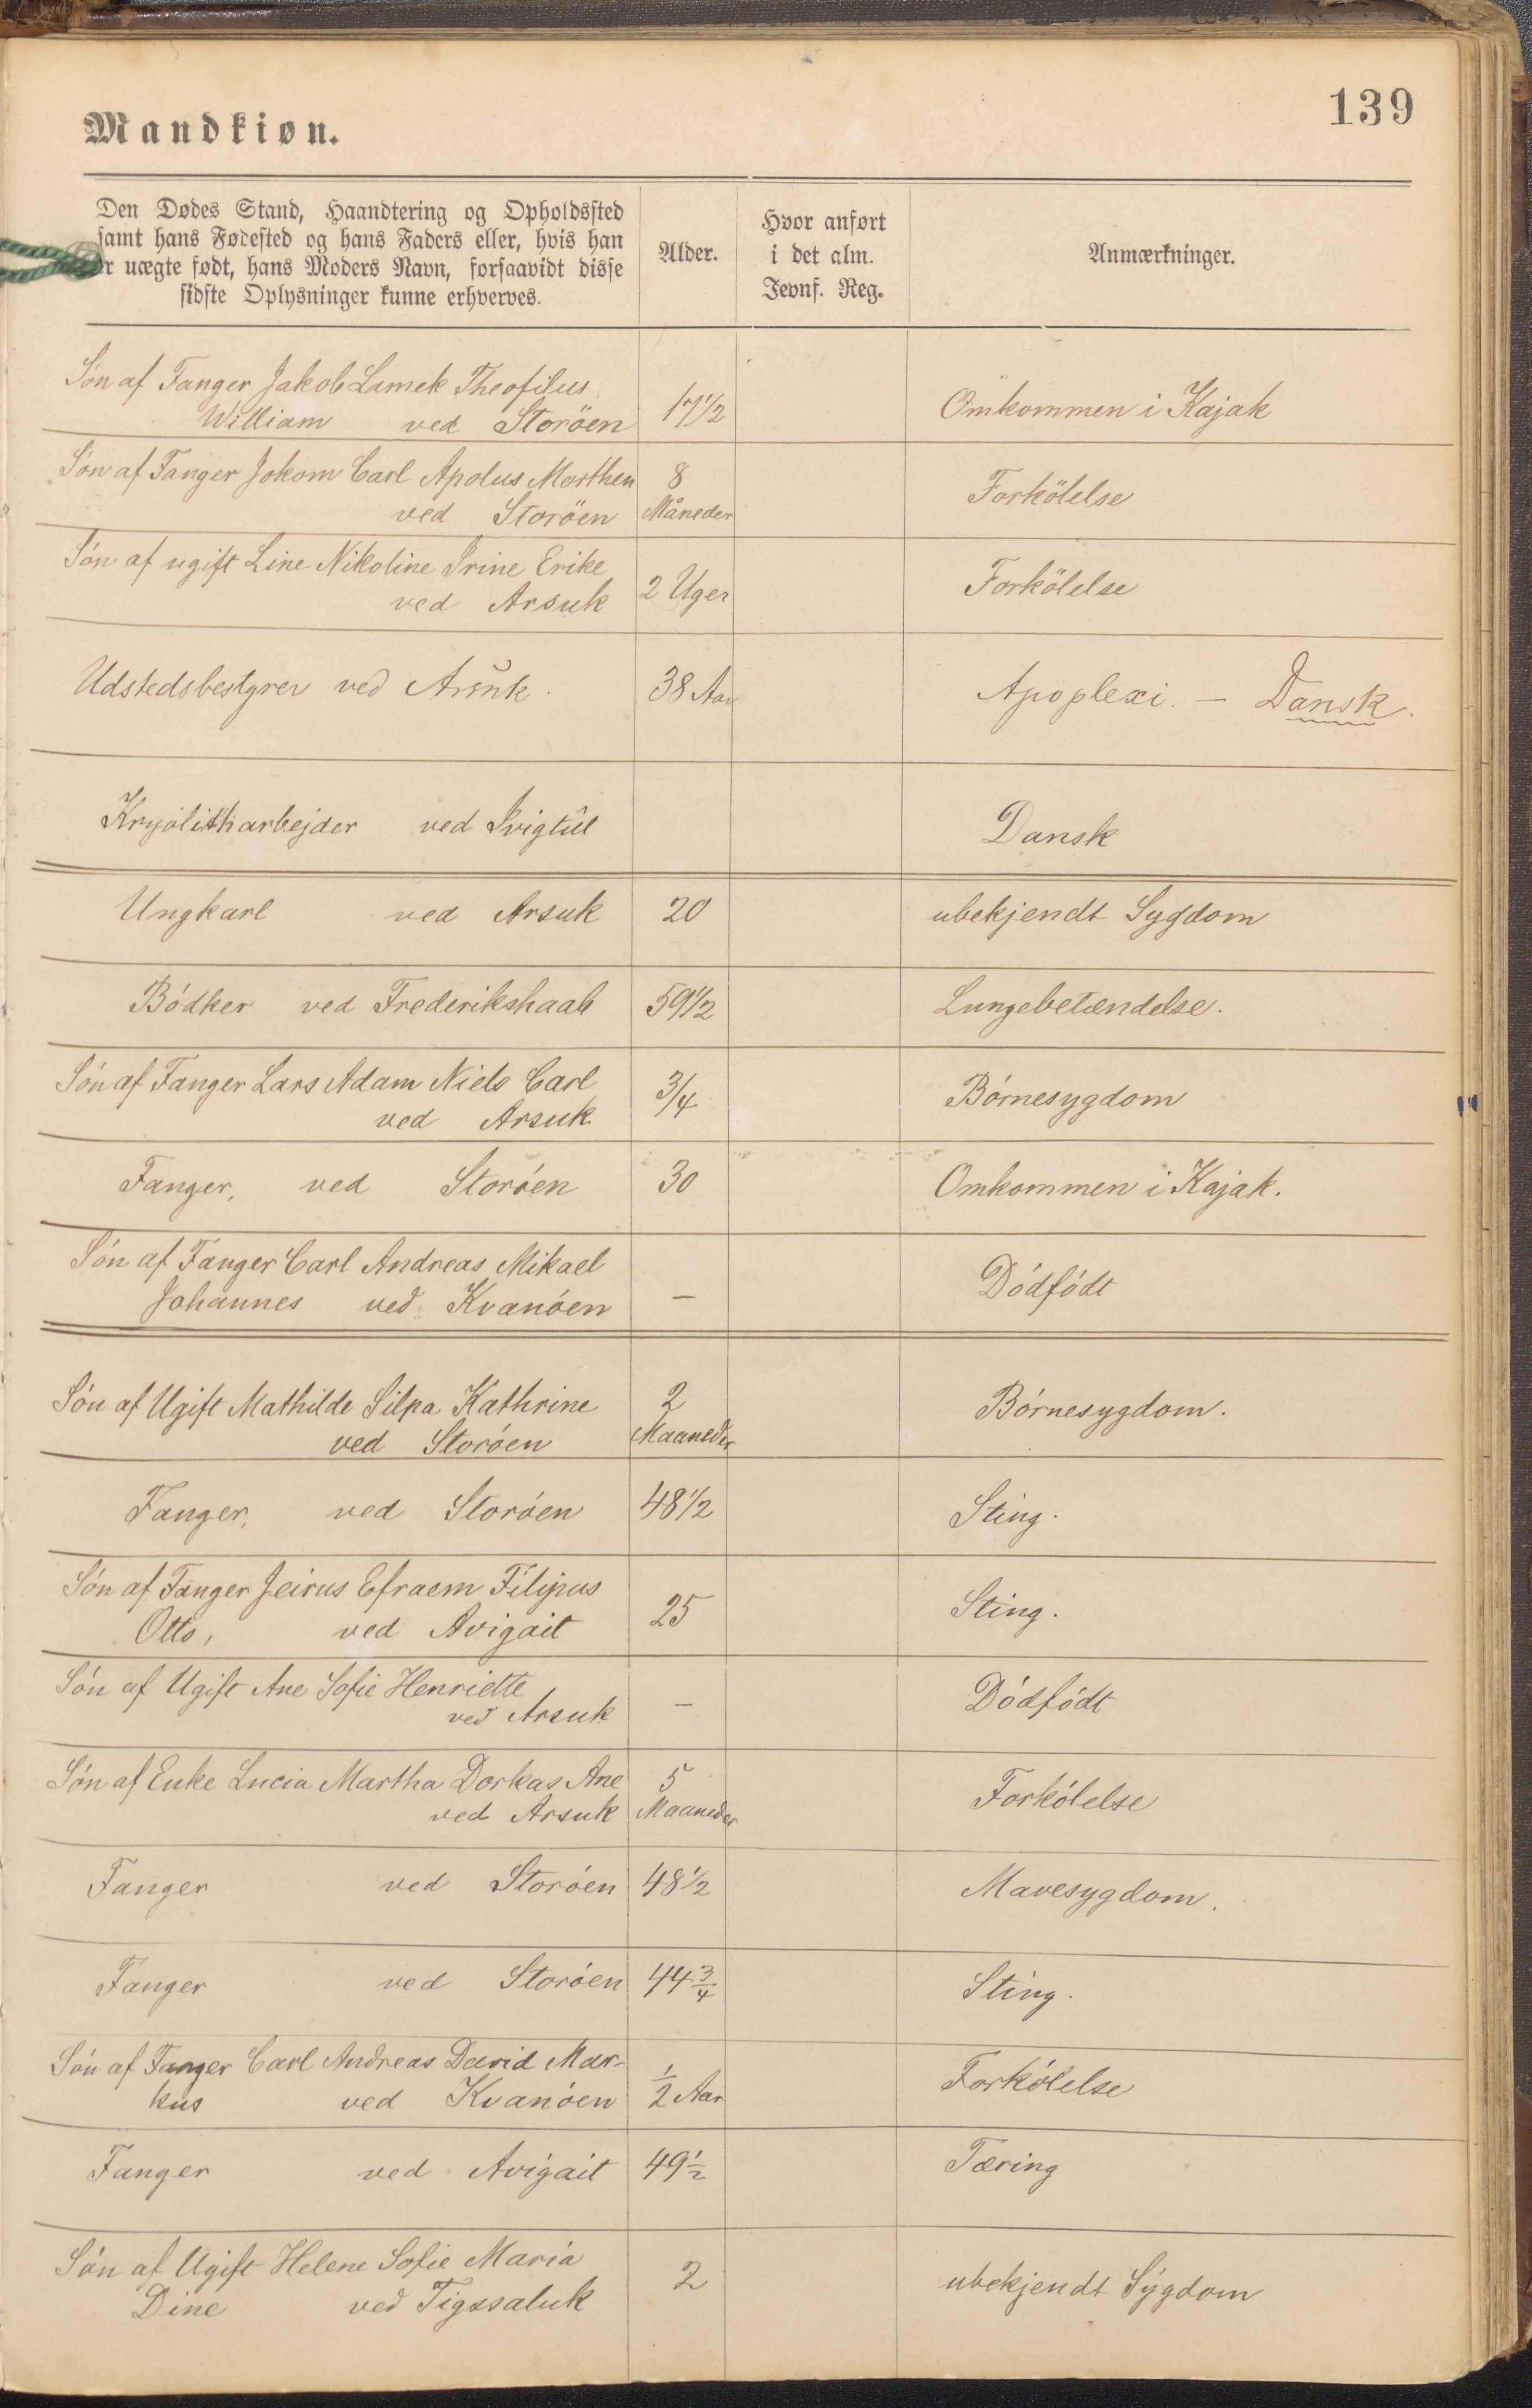 139
Mandkiøn.
Den Dødes Stand, Haandtering og Opholdssted
samt hans Fødested og hans Faders eller, hvis han
er uægte født, hans Moders Navn, forsaavidt disse
sidste Oplysninger kunne erhverves.
Alder.
Hvor anført
i det alm.
Jevnf. Reg.
Anmærkninger.
Søn af Fanger Jakob Lamek Theofilus
William ved Storöen 17½ Omkommen i Kajak
Søn af Fanger Jokom Carl Apolus Morthen 8
ved Storöen Måneder Forkölelse
Søn af ugift Line Nikoline Irine Erike
ved Arsuk 2 Uger Forkölelse
Udstedsbestyrer ved Arsuk. 38 Aar Apoplexi. — Dansk.
Kryolitharbejder ved Ivigtût Dansk
Ungkarl ved Arsuk 20 ubekjendt Sygdom
Bódker ved Frederikshaab 59½ Lungebetændelse.
Søn af Fanger Lars Adam Niels Carl
ved Arsuk 3/4 Børnesygdom
Fanger, ved Storóen 30 Omkommen i Kajak.
Søn af Fanger Carl Andreas Mikael
Johannes ved Kvanóen — Dódfódt
Søn af Ugift Mathilde Silpa Kathrine 2
ved Storóen Maaneder Bórnesygdom.
Fanger, ved Storóen 48½ Sting.
Søn af Fanger Jeirus Efraem Filipus
Otto, ved Avigait 25 Sting.
Søn af Ugift Ane Sofie Henriette
ved Arsuk — Dódfódt
Søn af Enke Lucia Martha Dorkas Ane 5
ved Arsuk Maaneder Forkólelse
Fanger ved Storóen 48½ Mavesygdom.
Fanger ved Storóen 44¾ Sting.
Søn af Fanger Carl Andreas David Mar-
kus ved Kvanóen ½ Aar Forkólelse
Fanger ved Avigait 49½ Tæring
Søn af Ugift Helene Sofie Maria
Dine ved Tigssaluk 2 ubekjendt Sýgdom